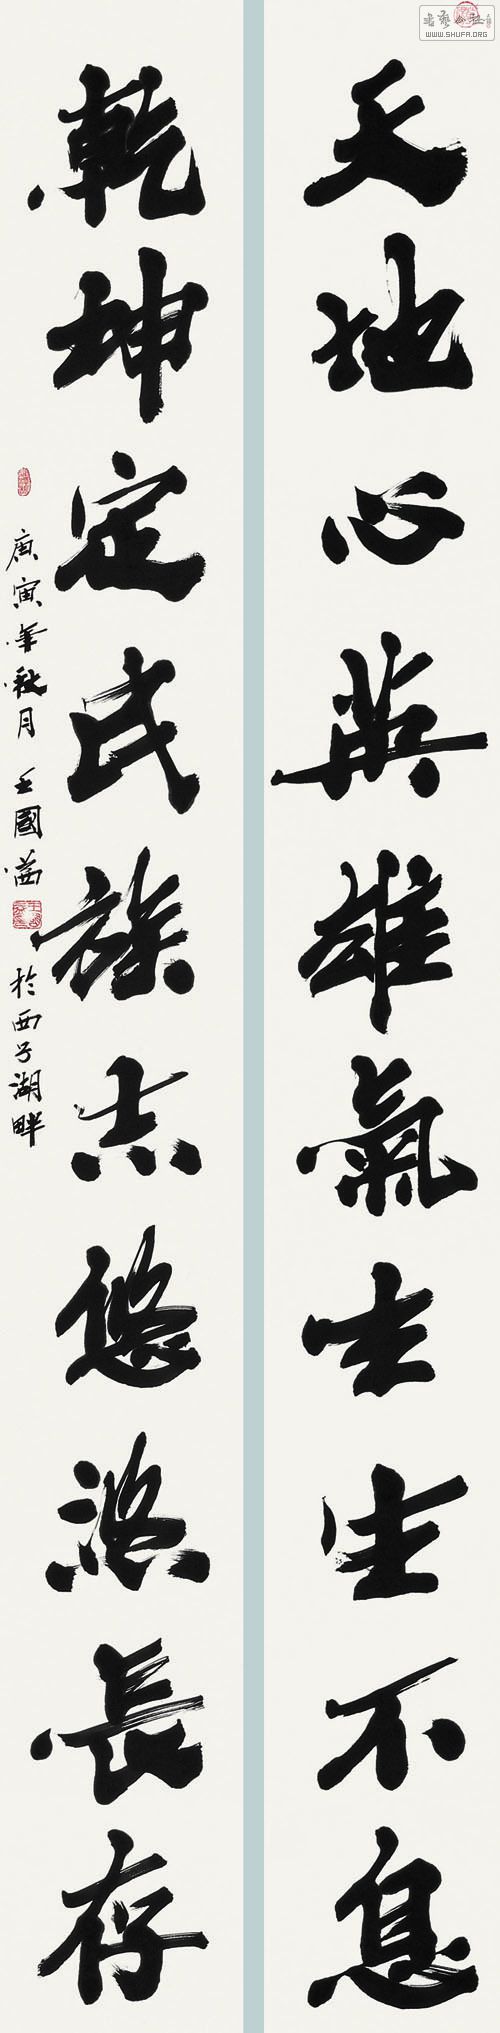 書藝公社
WWW.SHUFA.ORG
天地心英雄氣生生不息
乾坤定民族志悠悠長存
庚寅年秋月 王國 於西子湖畔